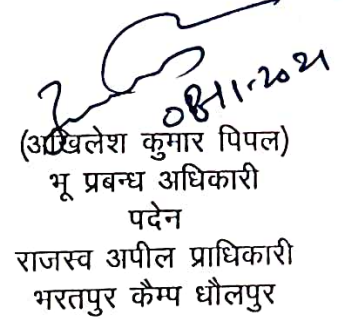 08-11-2021
(अखिलेश कुमार पिपल)
भू प्रबन्ध अधिकारी
पदेन
राजस्व अपील प्राधिकारी
भरतपुर कैम्प धौलपुर